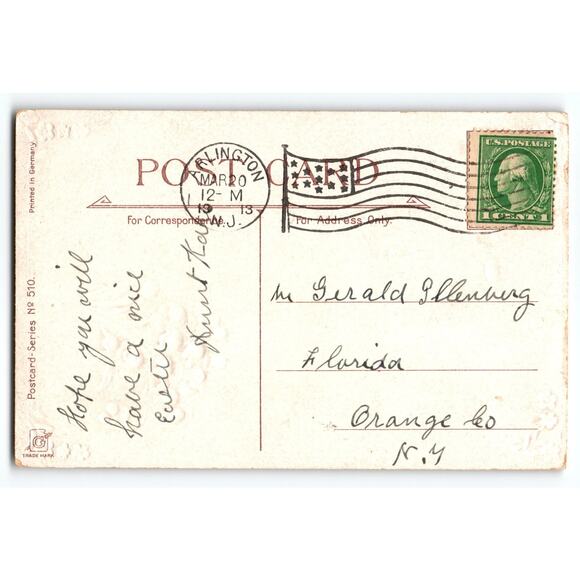 Printed in Germany.
Postcard-Series No 510.
TRADE MARK
G
POST CARD
For Correspondence.
For Address Only.
ARLINGTON
MAR 20
12-M
19 13
N.J.
U.S. POSTAGE
1 CENT 1
Hope you will
have a nice
Easter
Aunt
Gerald Ellenberg
Florida
Orange Co
N.Y